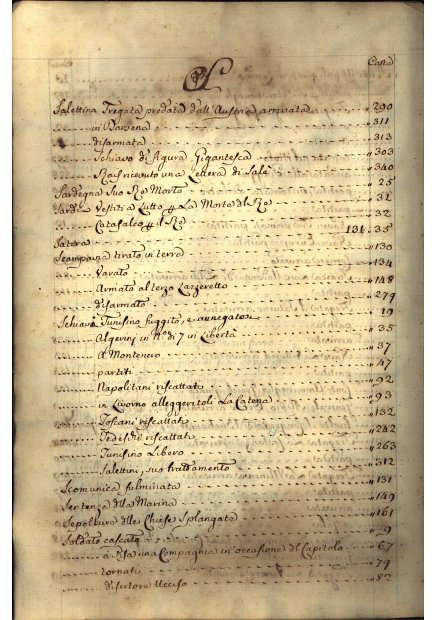 Carta
S
Salettina Fregata predata dall'Austria arrivata 290
in Darsena 311
disarmata 313
Schiavo di figura Gigantesca 303
Rais ricevuto una lettera di Salè 340
Sardegna Suo Re Morto 25
Sardi Vestiti a Lutto La Morte d Re 31
Catafalco il Re 32
131. 35
Scampavia tirato in terra 130
Varato 134
Armato al terzo Lazzeretto 148
disarmato 279
Schiavi Tunisino fuggito, e annegato 19
Algerini in n.º di 7 in Libertà 35
a Montenero 37
partiti 47
Napolitani riscattati 92
in Livorno alleggeritoli La Catena 93
Toscani riscattati 132
Tedeschi riscattati 242
Tunisino Libero 263
Salettini, suo trattamento 312
Scomunica fulminata 131
Sentenza della Marina 149
Sepoltura delle Chiese 161
Soldato cascato 9
a Pisa una Compagnia in occasione del Capitolo 67
tornati 79
disertore Ucciso 82